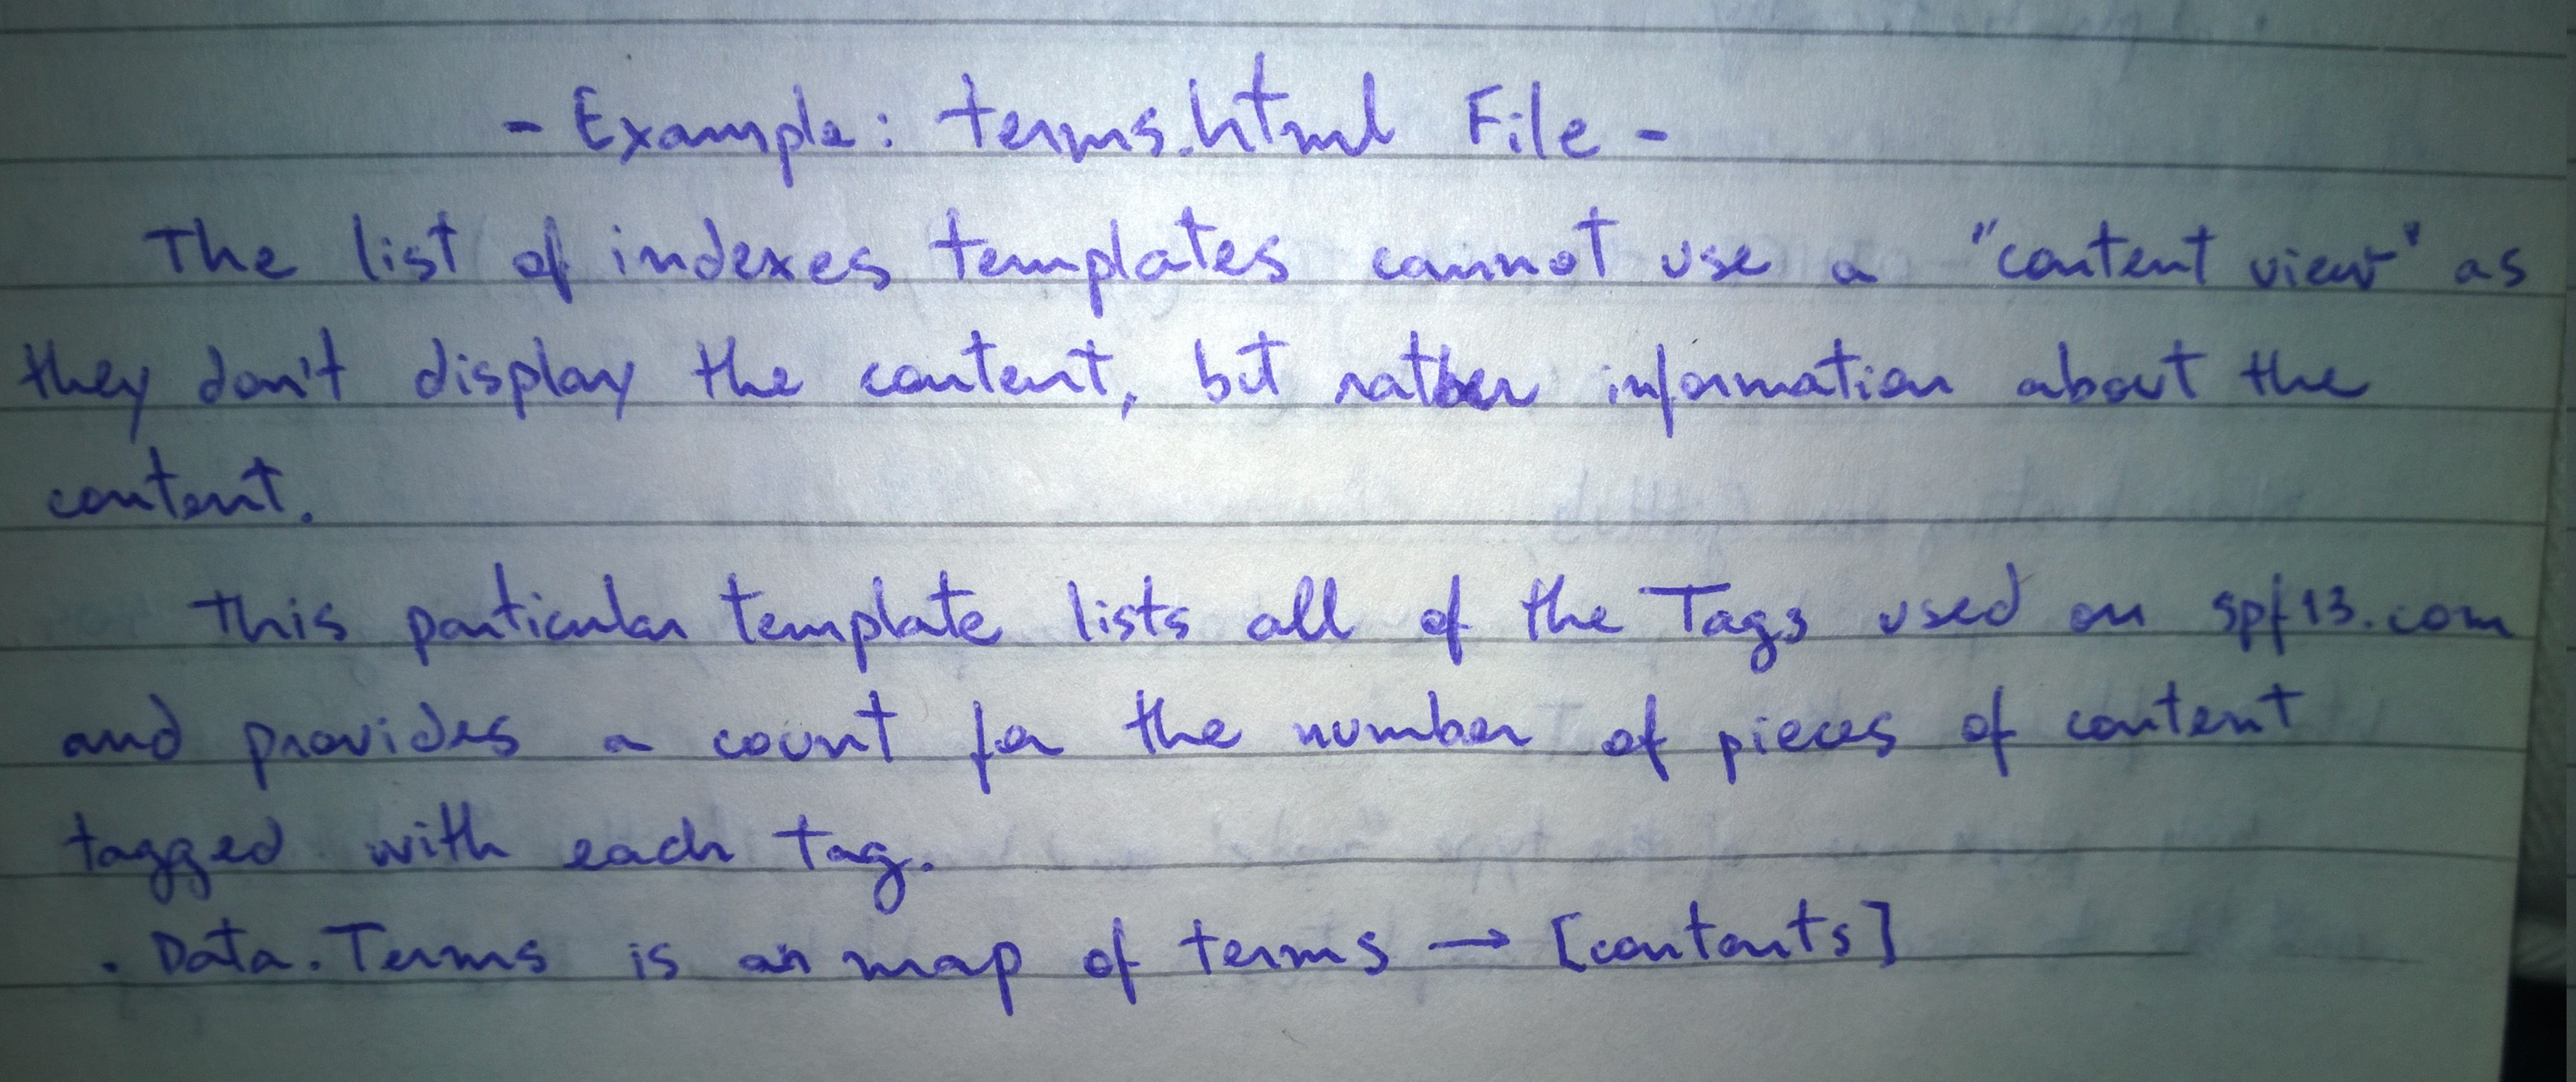 - Example: terms.html File -
The list of indexes templates cannot use a "content view" as
they don't display the content, but rather information about the
content.
This particular template lists all of the Tags used on spf13.com
and provides a count for the number of pieces of content
tagged with each tag.
. Data.Terms is an map of terms → [contants]